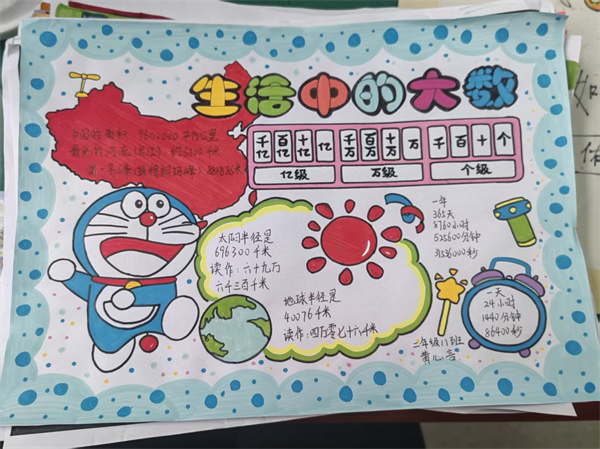 生活中的大数
中国的面积 9600000平方公里
最长的河流(长江):约6300千米
第一高峰(珠穆朗玛峰):8848.86米
千亿 百亿 十亿 亿 千万 百万 十万 万 千 百 十 个
亿级 万级 个级
太阳半径是
696300千米
读作:六十九万
六千三百千米
地球半径是
40076千米
读作:四万零七十六千米
一年
365天
8760小时
525600分钟
31536000秒
一天
24小时
1440分钟
86400秒
二年级(1)班